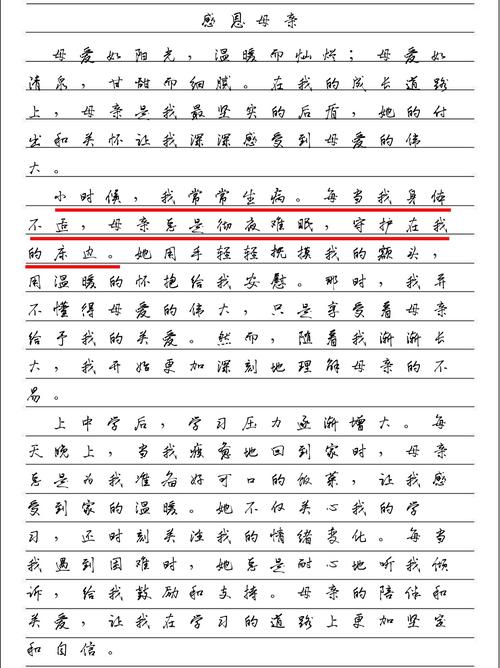 感恩母亲
母爱如阳光，温暖而灿烂；母爱如
清泉，甘甜而细腻。在我的成长道路
上，母亲是我最坚实的后盾，她的付
出和关怀让我深深感受到母爱的伟
大。
小时候，我常常生病。每当我身体
不适，母亲总是彻夜难眠，守护在我
的床边。她用手轻轻抚摸我的额头，
用温暖的怀抱给我安慰。那时，我并
不懂得母爱的伟大，只是享受着母亲
给予我的关爱。然而，随着我渐渐长
大，我开始更加深刻地理解母亲的不
易。
上中学后，学习压力逐渐增大。每
天晚上，当我疲惫地回到家时，母亲
总是为我准备好可口的饭菜，让我感
受到家的温暖。她不仅关心我的学
习，还时刻关注我的情绪变化。每当
我遇到困难时，她总是耐心地听我倾
诉，给我鼓励和支持。母亲的陪伴和
关爱，让我在学习的道路上更加坚定
和自信。